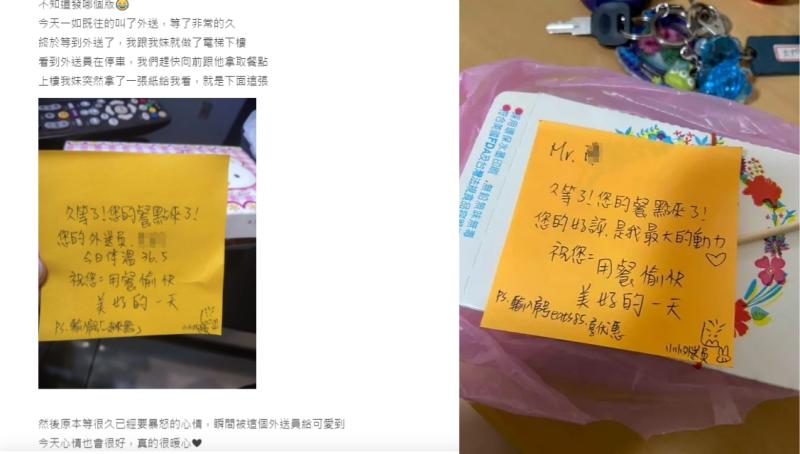 不知道發哪個版😂
今天一如既往的叫了外送，等了非常的久
終於等到外送了，我跟我妹就做了電梯下樓
看到外送員在停車，我們趕快向前跟他拿取餐點
上樓我妹突然拿了一張紙給我看，就是下面這張
久等了!您的餐點來了!
您的外送員.
今日体溫36.5
祝您=用餐愉快
美好的一天
Ps.輸入
然後原本等很久已經要暴怒的心情，瞬間被這個外送員給可愛到
今天心情也會很好，真的很暖心❤
Mr.
久等了!您的餐點來了!
您的好評.是我最大的動力
♡
祝您=用餐愉快
美好的一天
Ps.輸入 eats85.享优惠